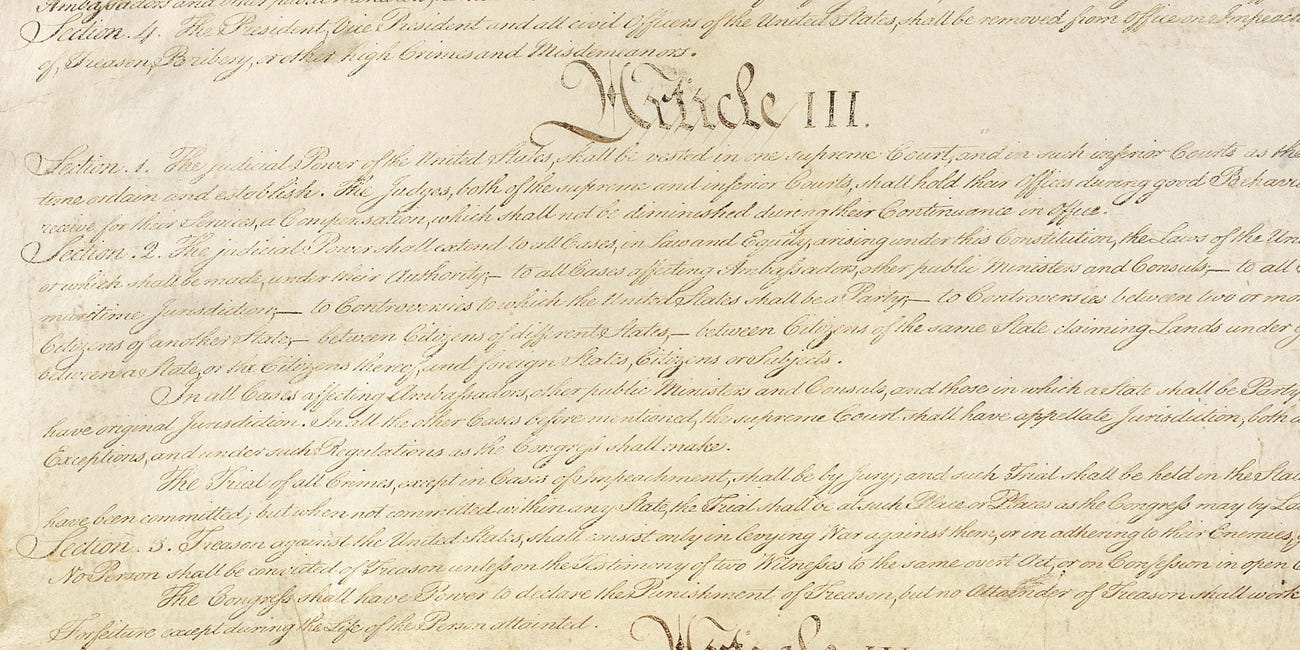 Ambassadors and other public
Section. 4. The President, Vice President and all civil Officers of the United States, shall be removed from Office on Impeac
of, Treason, Bribery, or other high Crimes and Misdemeanors.
Article III.
Section. 1. The judicial Power of the United States, shall be vested in one supreme Court, and in such inferior Courts as the
time ordain and establish. The Judges, both of the supreme and inferior Courts, shall hold their Offices during good Behavi
receive for their Services, a Compensation, which shall not be diminished during their Continuance in Office.
Section. 2. The judicial Power shall extend to all Cases, in Law and Equity, arising under this Constitution, the Laws of the Uni
or which shall be made, under their Authority;— to all Cases affecting Ambassadors, other public Ministers and Consuls;— to all
maritime Jurisdiction;— to Controversies to which the United States shall be a Party;— to Controversies between two or mo
Citizens of another State,— between Citizens of different States,— between Citizens of the same State claiming Lands under
between a State, or the Citizens thereof, and foreign States, Citizens or Subjects.
In all Cases affecting Ambassadors, other public Ministers and Consuls, and those in which a State shall be Party,
have original Jurisdiction. In all the other Cases before mentioned, the supreme Court shall have appellate Jurisdiction, both
Exceptions, and under such Regulations as the Congress shall make.
The Trial of all Crimes, except in Cases of Impeachment, shall be by Jury; and such Trial shall be held in the Stat
have been committed; but when not committed within any State, the Trial shall be at such Place or Places as the Congress may by La
Section. 3. Treason against the United States, shall consist only in levying War against them, or in adhering to their Enemies,
No Person shall be convicted of Treason unless on the Testimony of two Witnesses to the same overt Act, or on Confession in open
The Congress shall have Power to declare the Punishment of Treason, but no Attainder of Treason shall work
Forfeiture except during the Life of the Person attainted.
Article